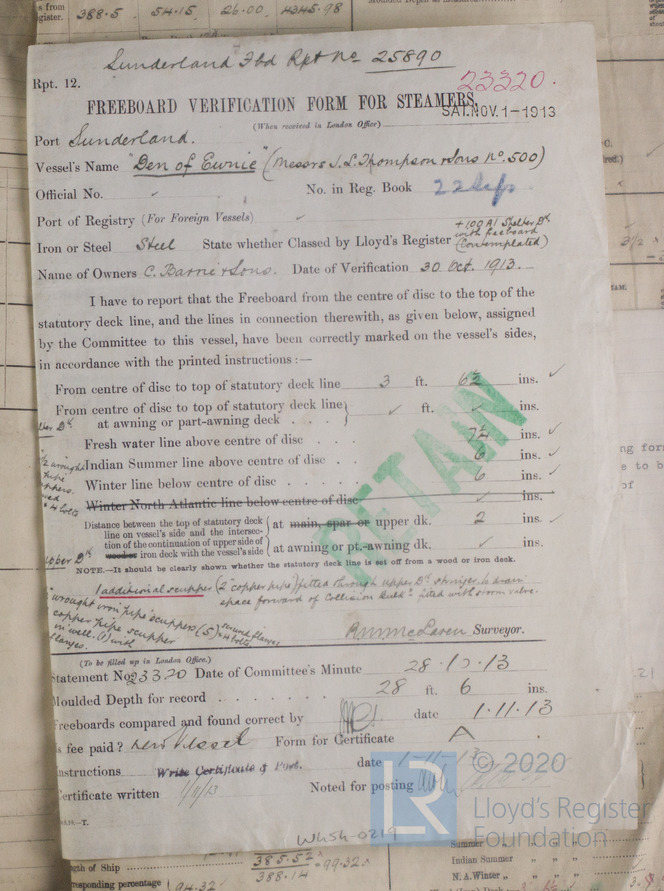 388.5 54.15 26.00 4345.98
Sunderland Fbd Rpt No 25890
Rpt. 12.
23320.
FREEBOARD VERIFICATION FORM FOR STEAMERS.
SAT. NOV. 1-1913
(When received in London Office)
Port Sunderland.
Vessel's Name "Den of Ewnie" (Messrs J. L. Thompson & Sons No. 500)
Official No.
No. in Reg. Book
Port of Registry (For Foreign Vessels)
+100 A1 Shelter Dk
with freeboard
Iron or Steel Steel State whether Classed by Lloyd's Register (Contemplated)
Name of Owners C. Barrie & Sons. Date of Verification 30 Oct. 1913.
I have to report that the Freeboard from the centre of disc to the top of the
statutory deck line, and the lines in connection therewith, as given below, assigned
by the Committee to this vessel, have been correctly marked on the vessel's sides,
in accordance with the printed instructions :—
From centre of disc to top of statutory deck line 3 ft. 6½ ins.
From centre of disc to top of statutory deck line
at awning or part-awning deck . . . ft. ins.
Fresh water line above centre of disc . . ins.
Indian Summer line above centre of disc . . 6 ins.
Winter line below centre of disc . . . 6 ins.
Winter North Atlantic line below centre of disc ins.
Distance between the top of statutory deck
line on vessel's side and the intersec-
tion of the continuation of upper side of
wood or iron deck with the vessel's side
at main, spar or upper dk. 2 ins.
at awning or pt.-awning dk. ins.
RETAIN
NOTE.—It should be clearly shown whether the statutory deck line is set off from a wood or iron deck.
Upper Dk
1 additional scupper (2" copper pipe) fitted through upper Dk stringer to drain
space forward of Collision Bulkd fitted with storm valve.
wrought iron pipe scuppers (5)
copper pipe scupper
in well. (1) with
flanges.
round flanges
& 4 bolts
R. M. McLaren Surveyor.
(To be filled up in London Office.)
Statement No 23320 Date of Committee's Minute 28.10.13
Moulded Depth for record . . . . . . . 28 ft. 6 ins.
Freeboards compared and found correct by date 1.11.13
Is fee paid? New Vessel Form for Certificate A
Instructions Write Certificate & Post. date 1-11-13
Certificate written 1/11/13 Noted for posting
W454-0219
© 2020
LR
Lloyd's Register
Foundation
Summer
Indian Summer
N.A. Winter
Length of Ship
385.52
388.14
99.32
corresponding percentage
94.32